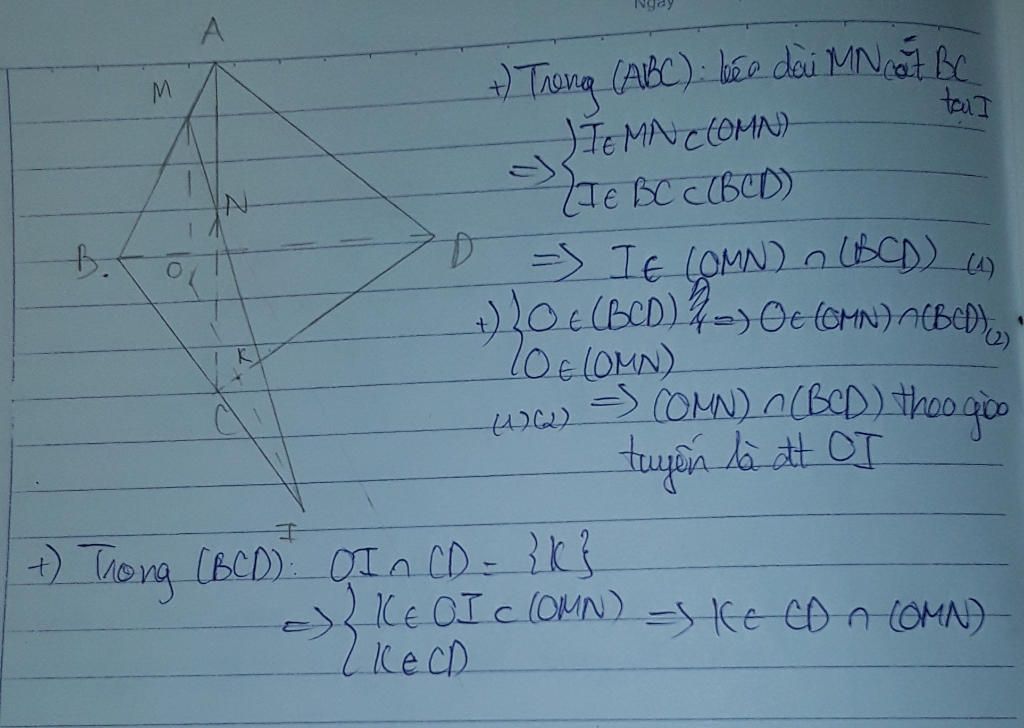 Ngày
A
M
N
B.
O
D
K
C
I
+) Trong (ABC): kéo dài MN cắt BC
tại I
=> { I ∈ MN ⊂ (OMN)
{ I ∈ BC ⊂ (BCD)
=> I ∈ (OMN) ∩ (BCD) (1)
+) { O ∈ (BCD) => O ∈ (OMN) ∩ (BCD) (2)
{ O ∈ (OMN)
(1)(2) => (OMN) ∩ (BCD) theo giao
tuyến là đt OI
+) Trong (BCD): OI ∩ CD = {K}
=> { K ∈ OI ⊂ (OMN) => K ∈ CD ∩ (OMN)
{ K ∈ CD